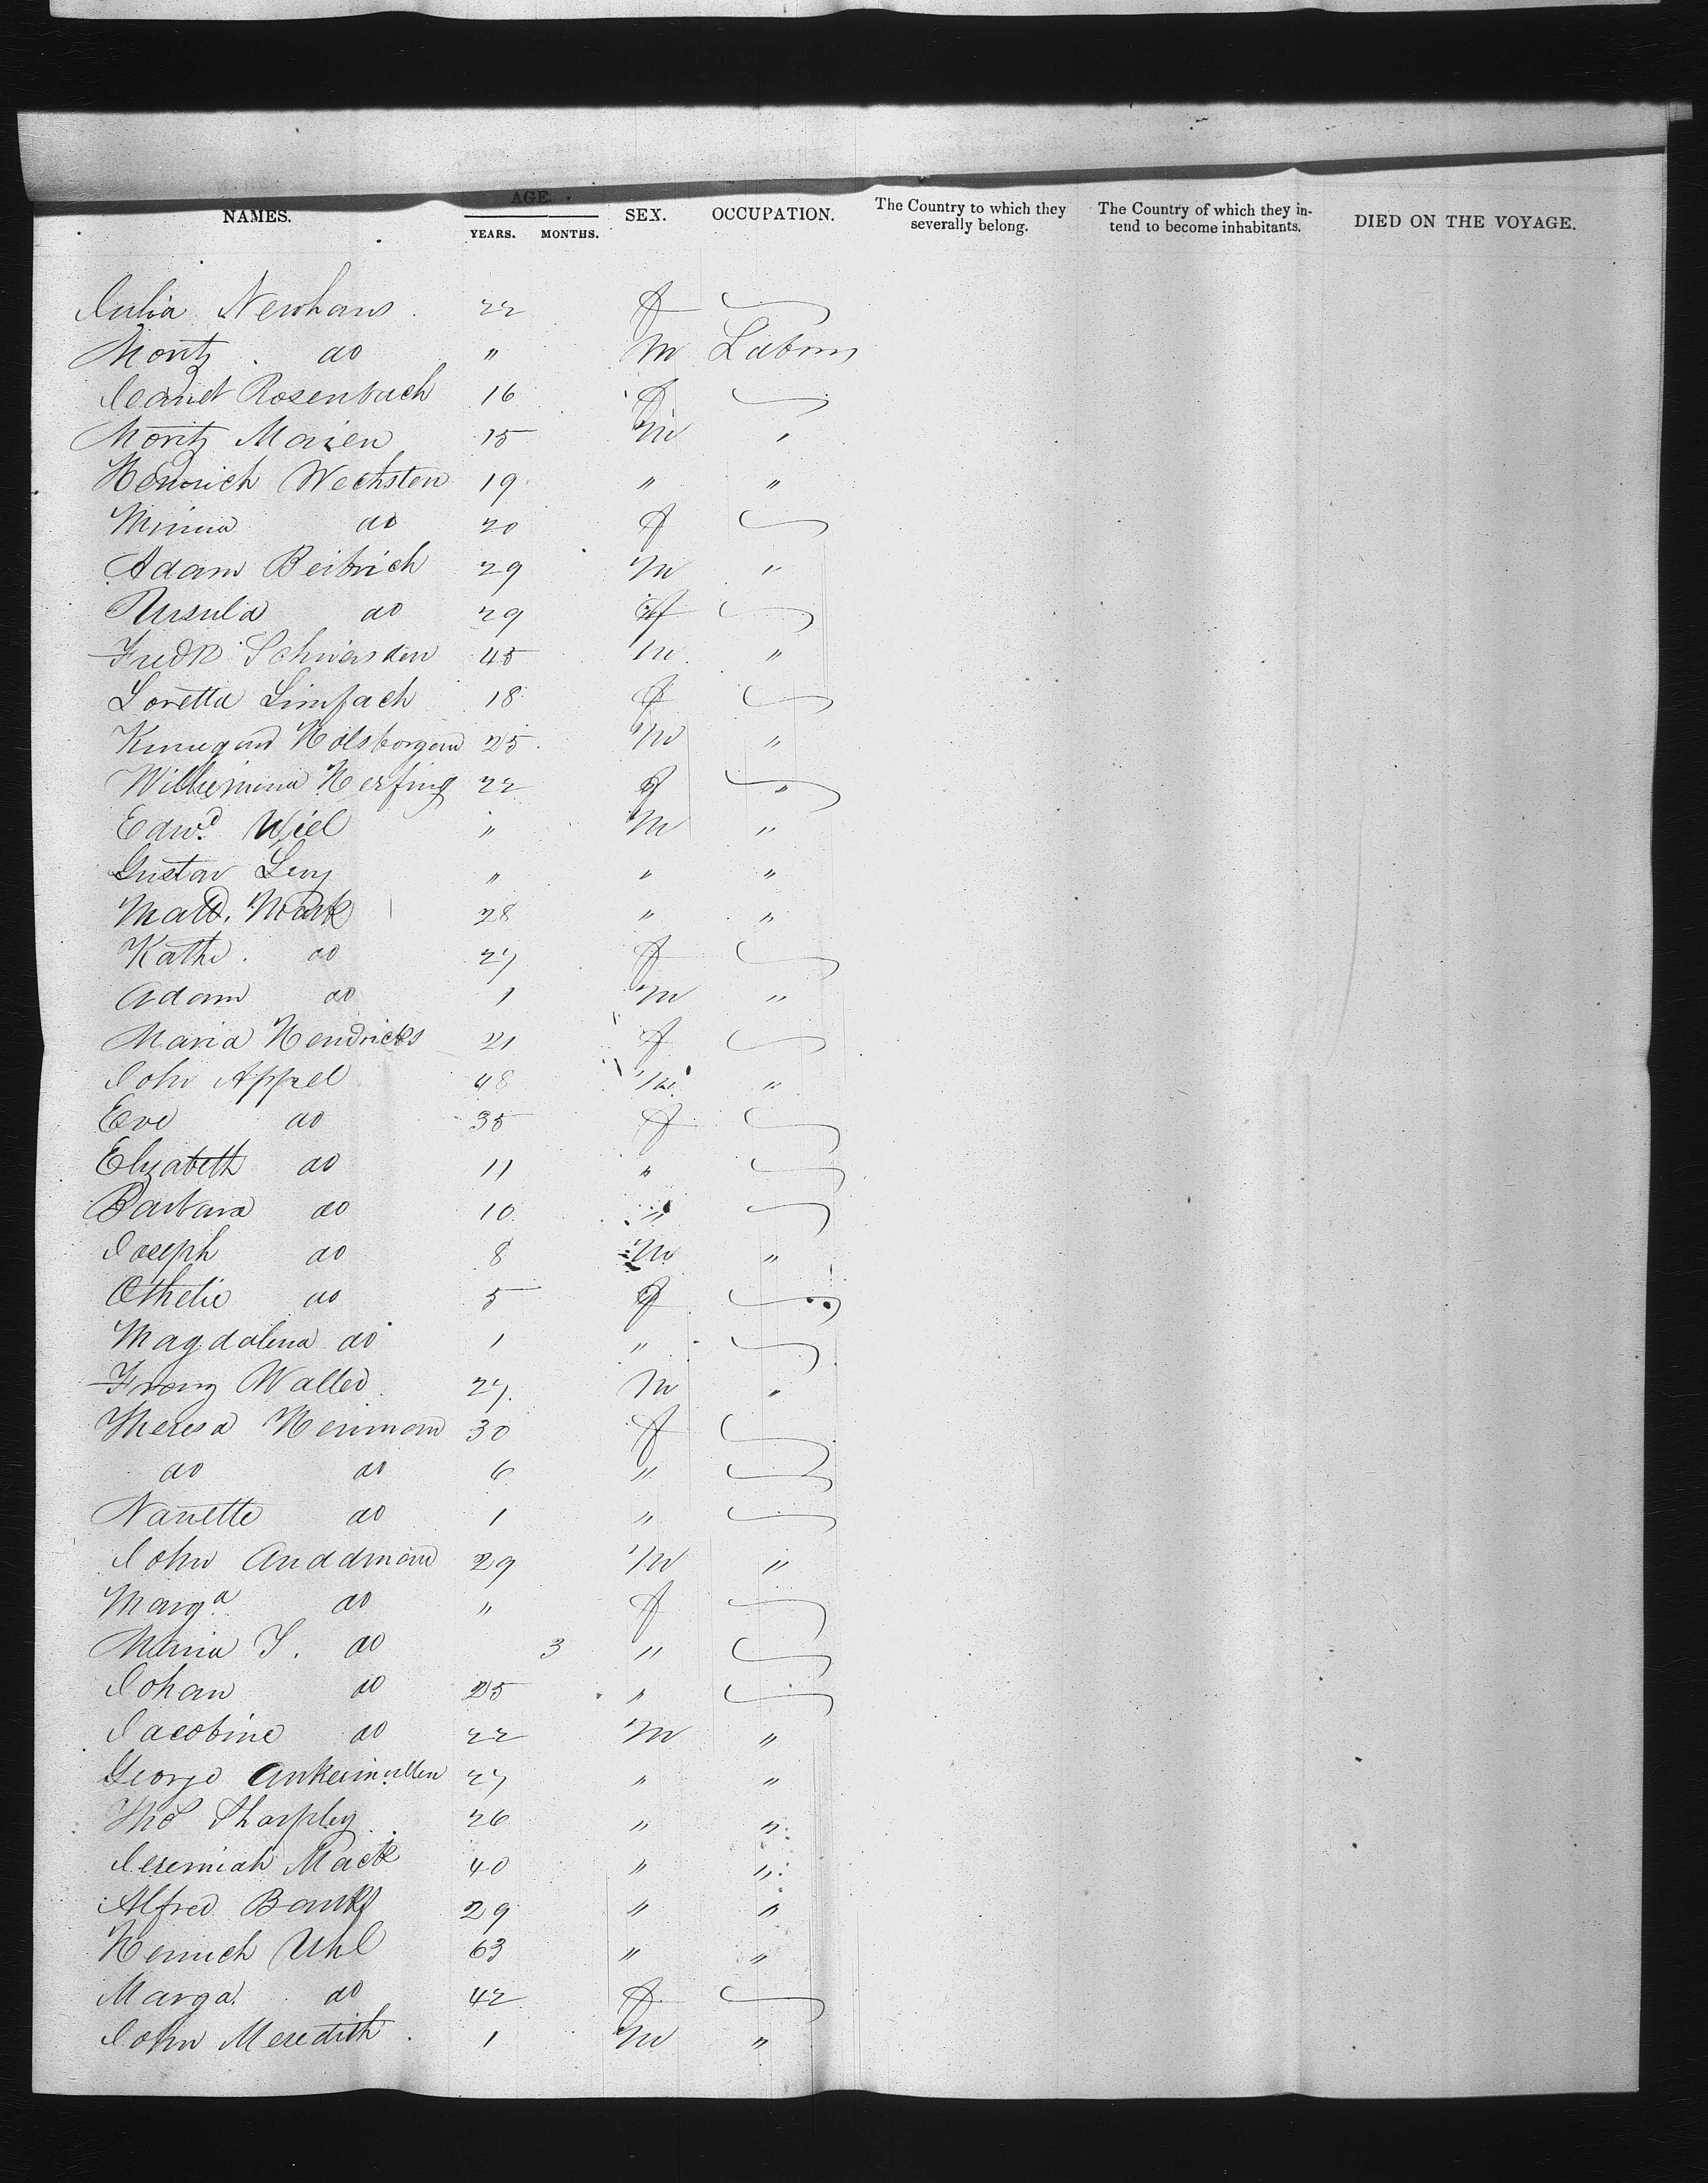 AGE.
NAMES. YEARS. MONTHS. SEX. OCCUPATION. The Country to which they severally belong. The Country of which they intend to become inhabitants. DIED ON THE VOYAGE.
Julia Newhaus 22 f
Moritz do " m Labour
Jeanet Rosenbach 16 f
Moritz Maizen 15 m "
Heinrich Wechsten 19 " "
Minna do 20 f
Adam Beitrich 29 m "
Ursula do 29 f
Fredk 45 m "
Loretta Limpach 18 f
25 m "
Wilhemina Herfing 22 f "
Edwd. Wiel " m "
Gustav Levy " " "
Matt. Mark 28 " "
Kathe. do 27 f
Adam do 1 m "
Maria Hendricks 21 f
John Appel 48 m "
Eve do 35 f
Elizabeth do 11 "
Barbara do 10 "
Joseph do 8 m "
Othelie do 5 f
Magdalena do 1 "
Franz Walter 27 m "
Theresa Heriman 30 f
do do 6 "
Nanette do 1 "
John Auddman 29 m "
Marga do " f
Maria T. do 3 "
Johan do 25 "
Jacobine do 22 m "
George 27 " "
Tho Sharpley 26 " "
Jeremiah Mack 40 " "
Alfred Banks 29 " "
Heinrich Uhl 63 " "
Marga. do 42 f
John Meredith 1 m "